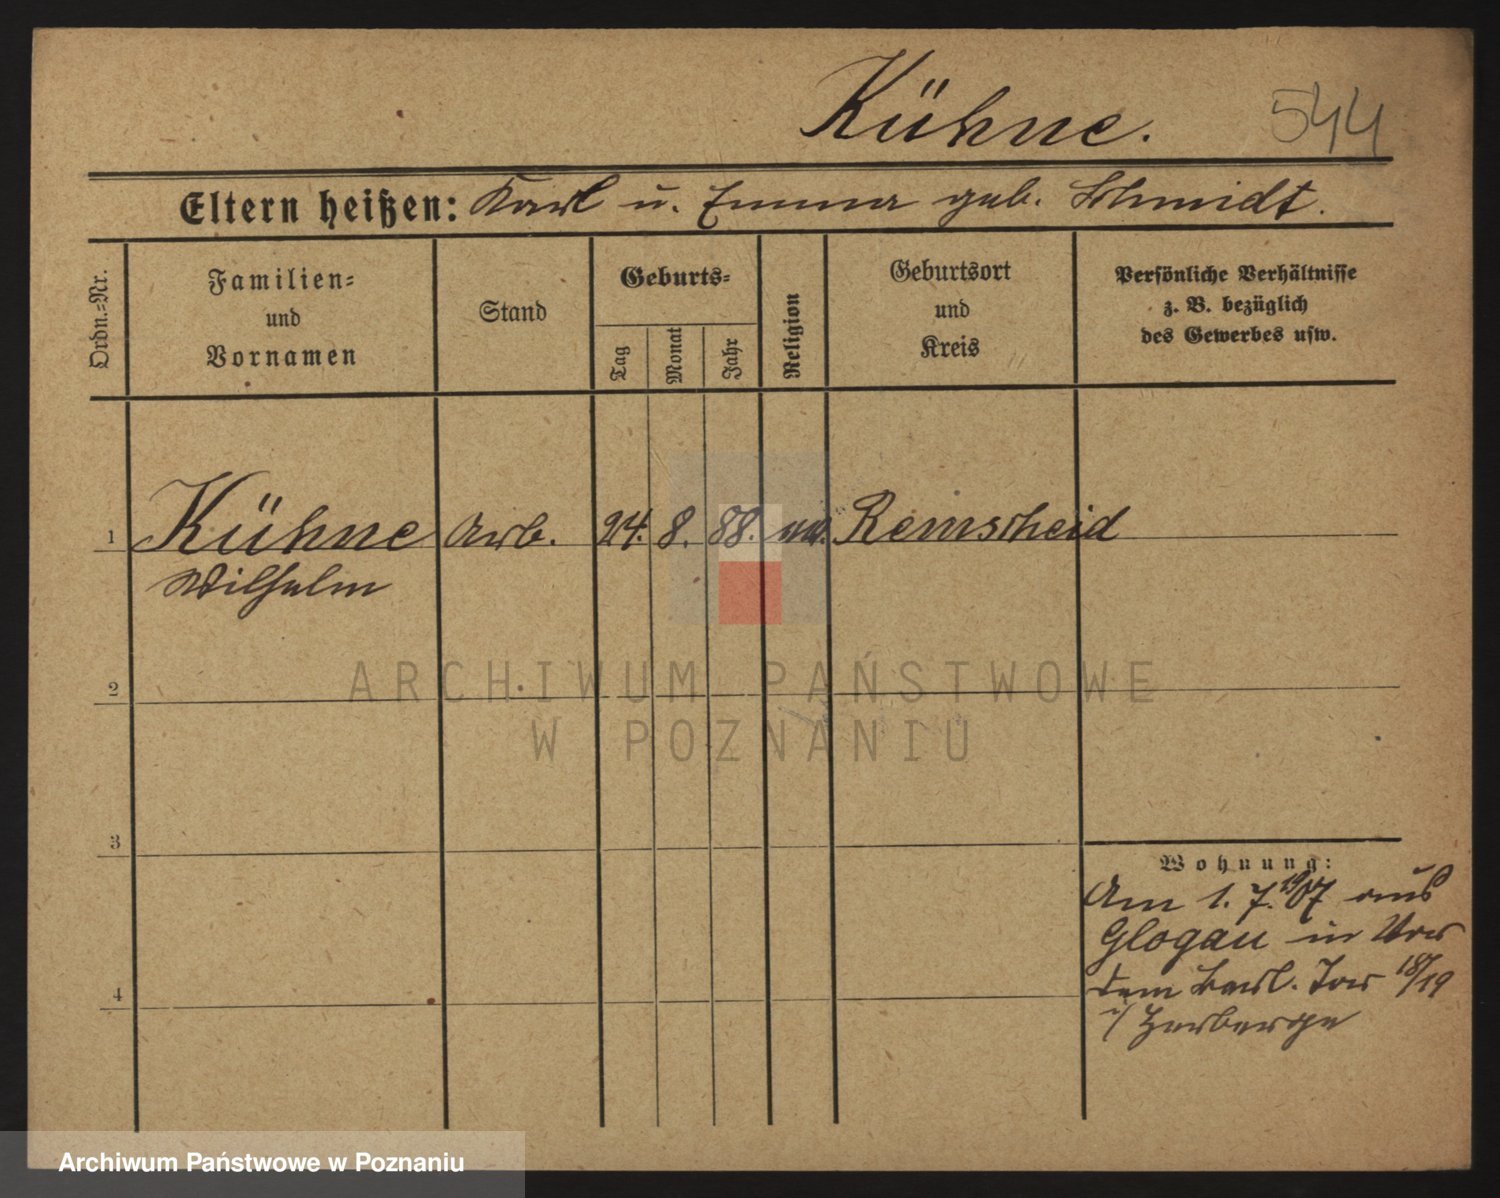 Kühne.
544
Eltern heißen: Karl u. Emma geb. Schmidt.
Ordn.=Nr.
Familien=
und
Vornamen
Stand
Geburts=
Tag
Monat
Jahr
Religion
Geburtsort
und
Kreis
Persönliche Verhältnisse
z. B. bezüglich
des Gewerbes usw.
1 Kühne Arb. 24. 8. 88. ev. Remscheid
Wilhelm
2
3
4
Wohnung:
Am 1. 7. 1907 aus
Glogau in Vor
dem Berl. Tor 18/19
i/ Herberge
ARCHIWUM PAŃSTWOWE
W POZNANIU
Archiwum Państwowe w Poznaniu